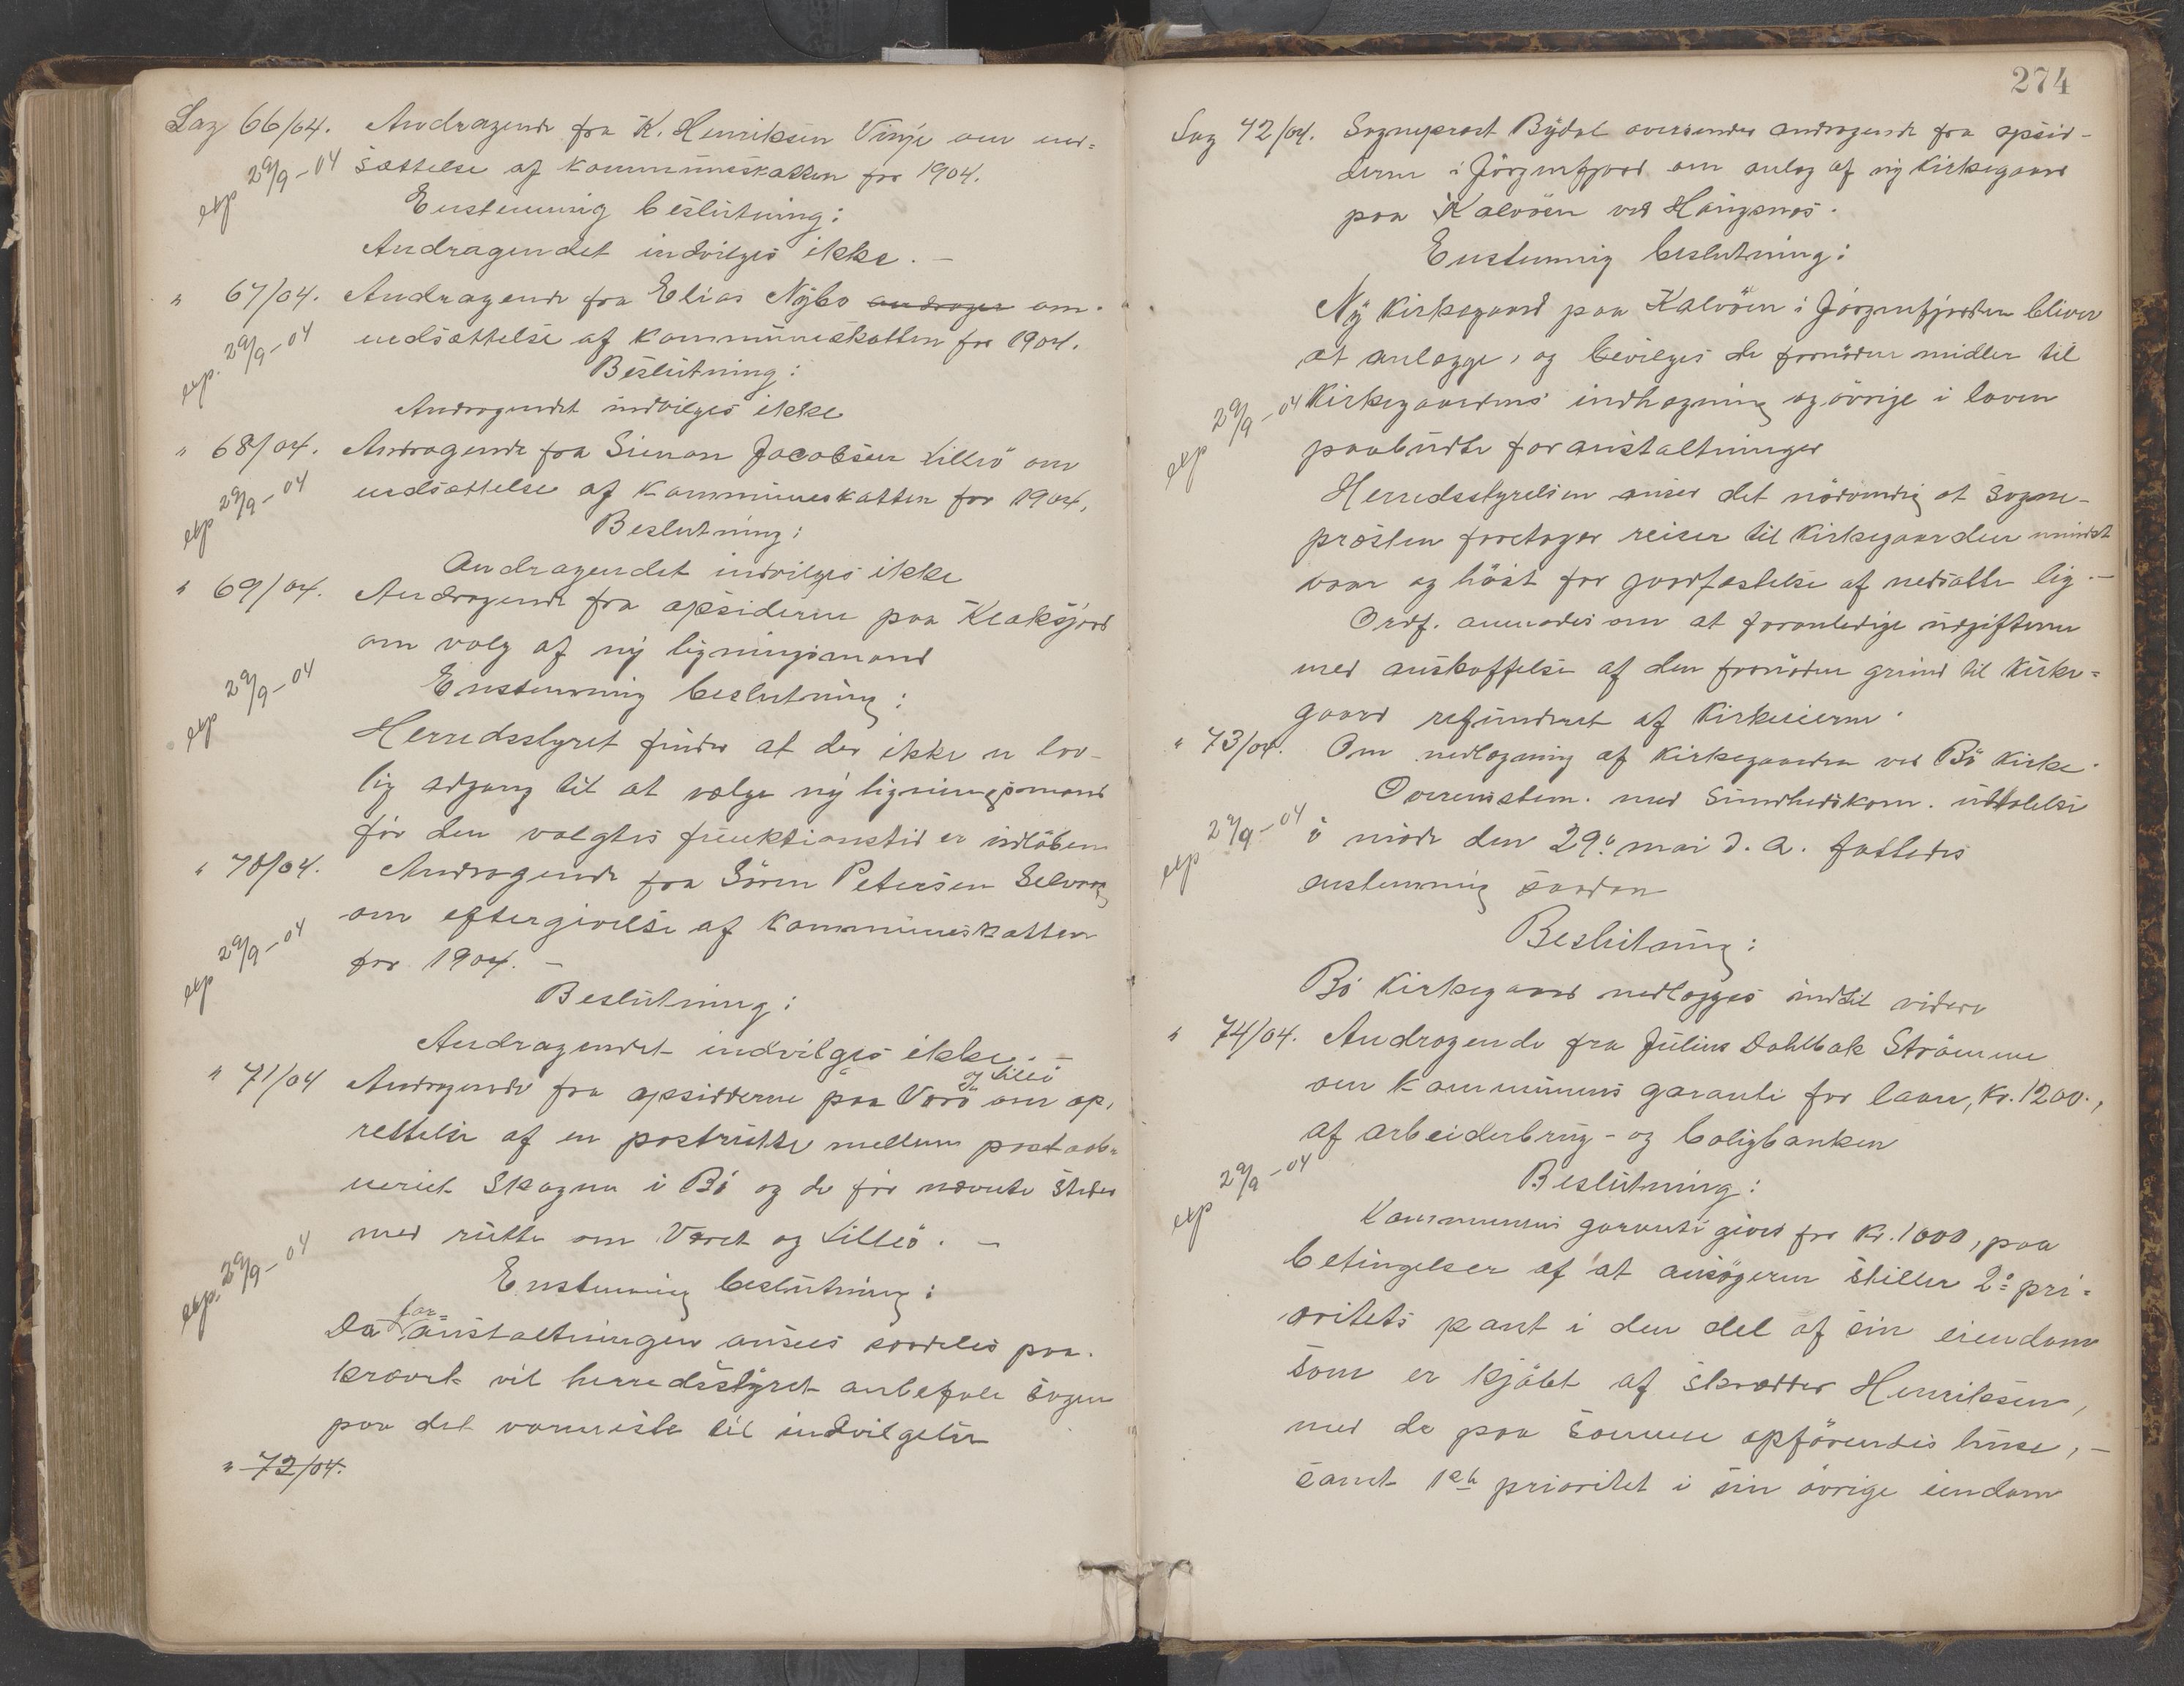 Sag 66/04. Andragende fra K. Henriksen Vinje om ned=
exp 29/9-04 sættelse af kommuneskatten for 1904.
Enstemmig beslutning:
Andragendet indvilges ikke. —
" 67/04. Andragende fra Elias Nybo androger om
exp. 29/9-04 nedsættelse af kommuneskatten for 1904.
Beslutning:
Andragendet indvilges ikke
" 68/04. Andragende fra Simon Jacobsen Lillrö om
exp 29/9-04 nedsættelse af kommuneskatten for 1904.
Beslutning:
Andragendet indvilges ikke
" 69/04. Andragende fra opsiderne paa Klaksjord
om valg af ny ligningsmand
exp 29/9-04 Enstemmig beslutning:
Herredsstyret finder at der ikke er lov-
lig adgang til at vælge ny ligningsmand
før den valgtes funktionstid er udløben
" 70/04. Andragende fra Sören Petersen Selvaag
om eftergivelse af kommuneskatten
exp 29/9-04 for 1904. —
Beslutning:
Andragendet indvilges ikke. —
og Lillö
" 71/04 Andragende fra opsidderne paa Værö om op,
rettelse af en postrutte mellem postaab-
neriet Skagen i Bö og de før nævnte steder
med rutte om Været og Lillö. —
exp. 29/9-04 Enstemmig beslutning:
for
Da anstaltningen ansees saaledes paa-
krævet vil herredsstyret anbefale sagen
paa det varmeste til indvilgelse
" 72/04.
274
Sag 72/04. Sogneprest Bydal oversender andragende fra opsid-
derne i Jörgenfjord om anlæg af ny kirkegaard
paa Kalvöen ved Haugsnes.
Enstemmig beslutning:
Ny kirkegaard paa Kalvöen i Jörgenfjorden bliver
at anlægge, og bevilges de fornödne midler til
exp 29/9-04 Kirkegaardens indhegning og övrige i loven
paabudte foranstaltninger
Herredsstyrelsen anser det nödvendig at Sogne-
præsten foretager reiser til kirkegaarden mindst
vaar og höst for jordfæstelse af nedsatte lig. —
Ordf. anmodes om at foranledige udgifterne
med anskaffelse af den fornödne grund til kirke=
gaard refunderet af kirkeeierne.
" 73/04. Om nedlægning af kirkegaarden ved Bö kirke.
Overensstem. med Sundhedskom. udtalelse
exp 29/9-04 i möde den 29de mai d. a. fattedes
enstemmig saadan
Beslutning:
Bö kirkegaard nedlægges indtil videre
" 74/04. Andragende fra Julius Dahlbak Strömme
om kommunens garanti for laan, kr. 1200.,
af arbeiderbrug- og boligbanken
exp 29/9-04 Beslutning:
Kommunens garanti gives for kr. 1000, paa
betingelser af at ansögeren stiller 2: pri=
oritets pant i den del af sin eiendom
som er kjöbt af skrædder Henriksen,
med de paa samme opförendes huse, —
samt 1ste prioritet i sin övrige eiendom